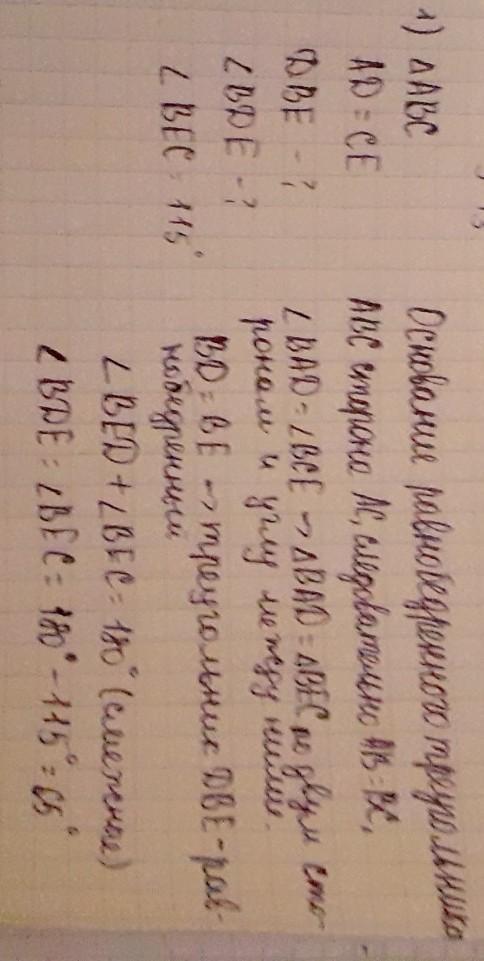 1) ΔABC
AD = CE
DBE - ?
∠BDE - ?
∠BEC = 115°
Основание равнобедренного треугольника
ABC сторона AC, следовательно AB = BC,
∠BAD = ∠BCE → ΔBAD = ΔBEC по двум сто-
ронам и углу между ними.
BD = BE → треугольник DBE - рав-
нобедренный
∠BED + ∠BEC = 180° (смежные)
∠BDE = ∠BEC = 180° - 115° = 65°